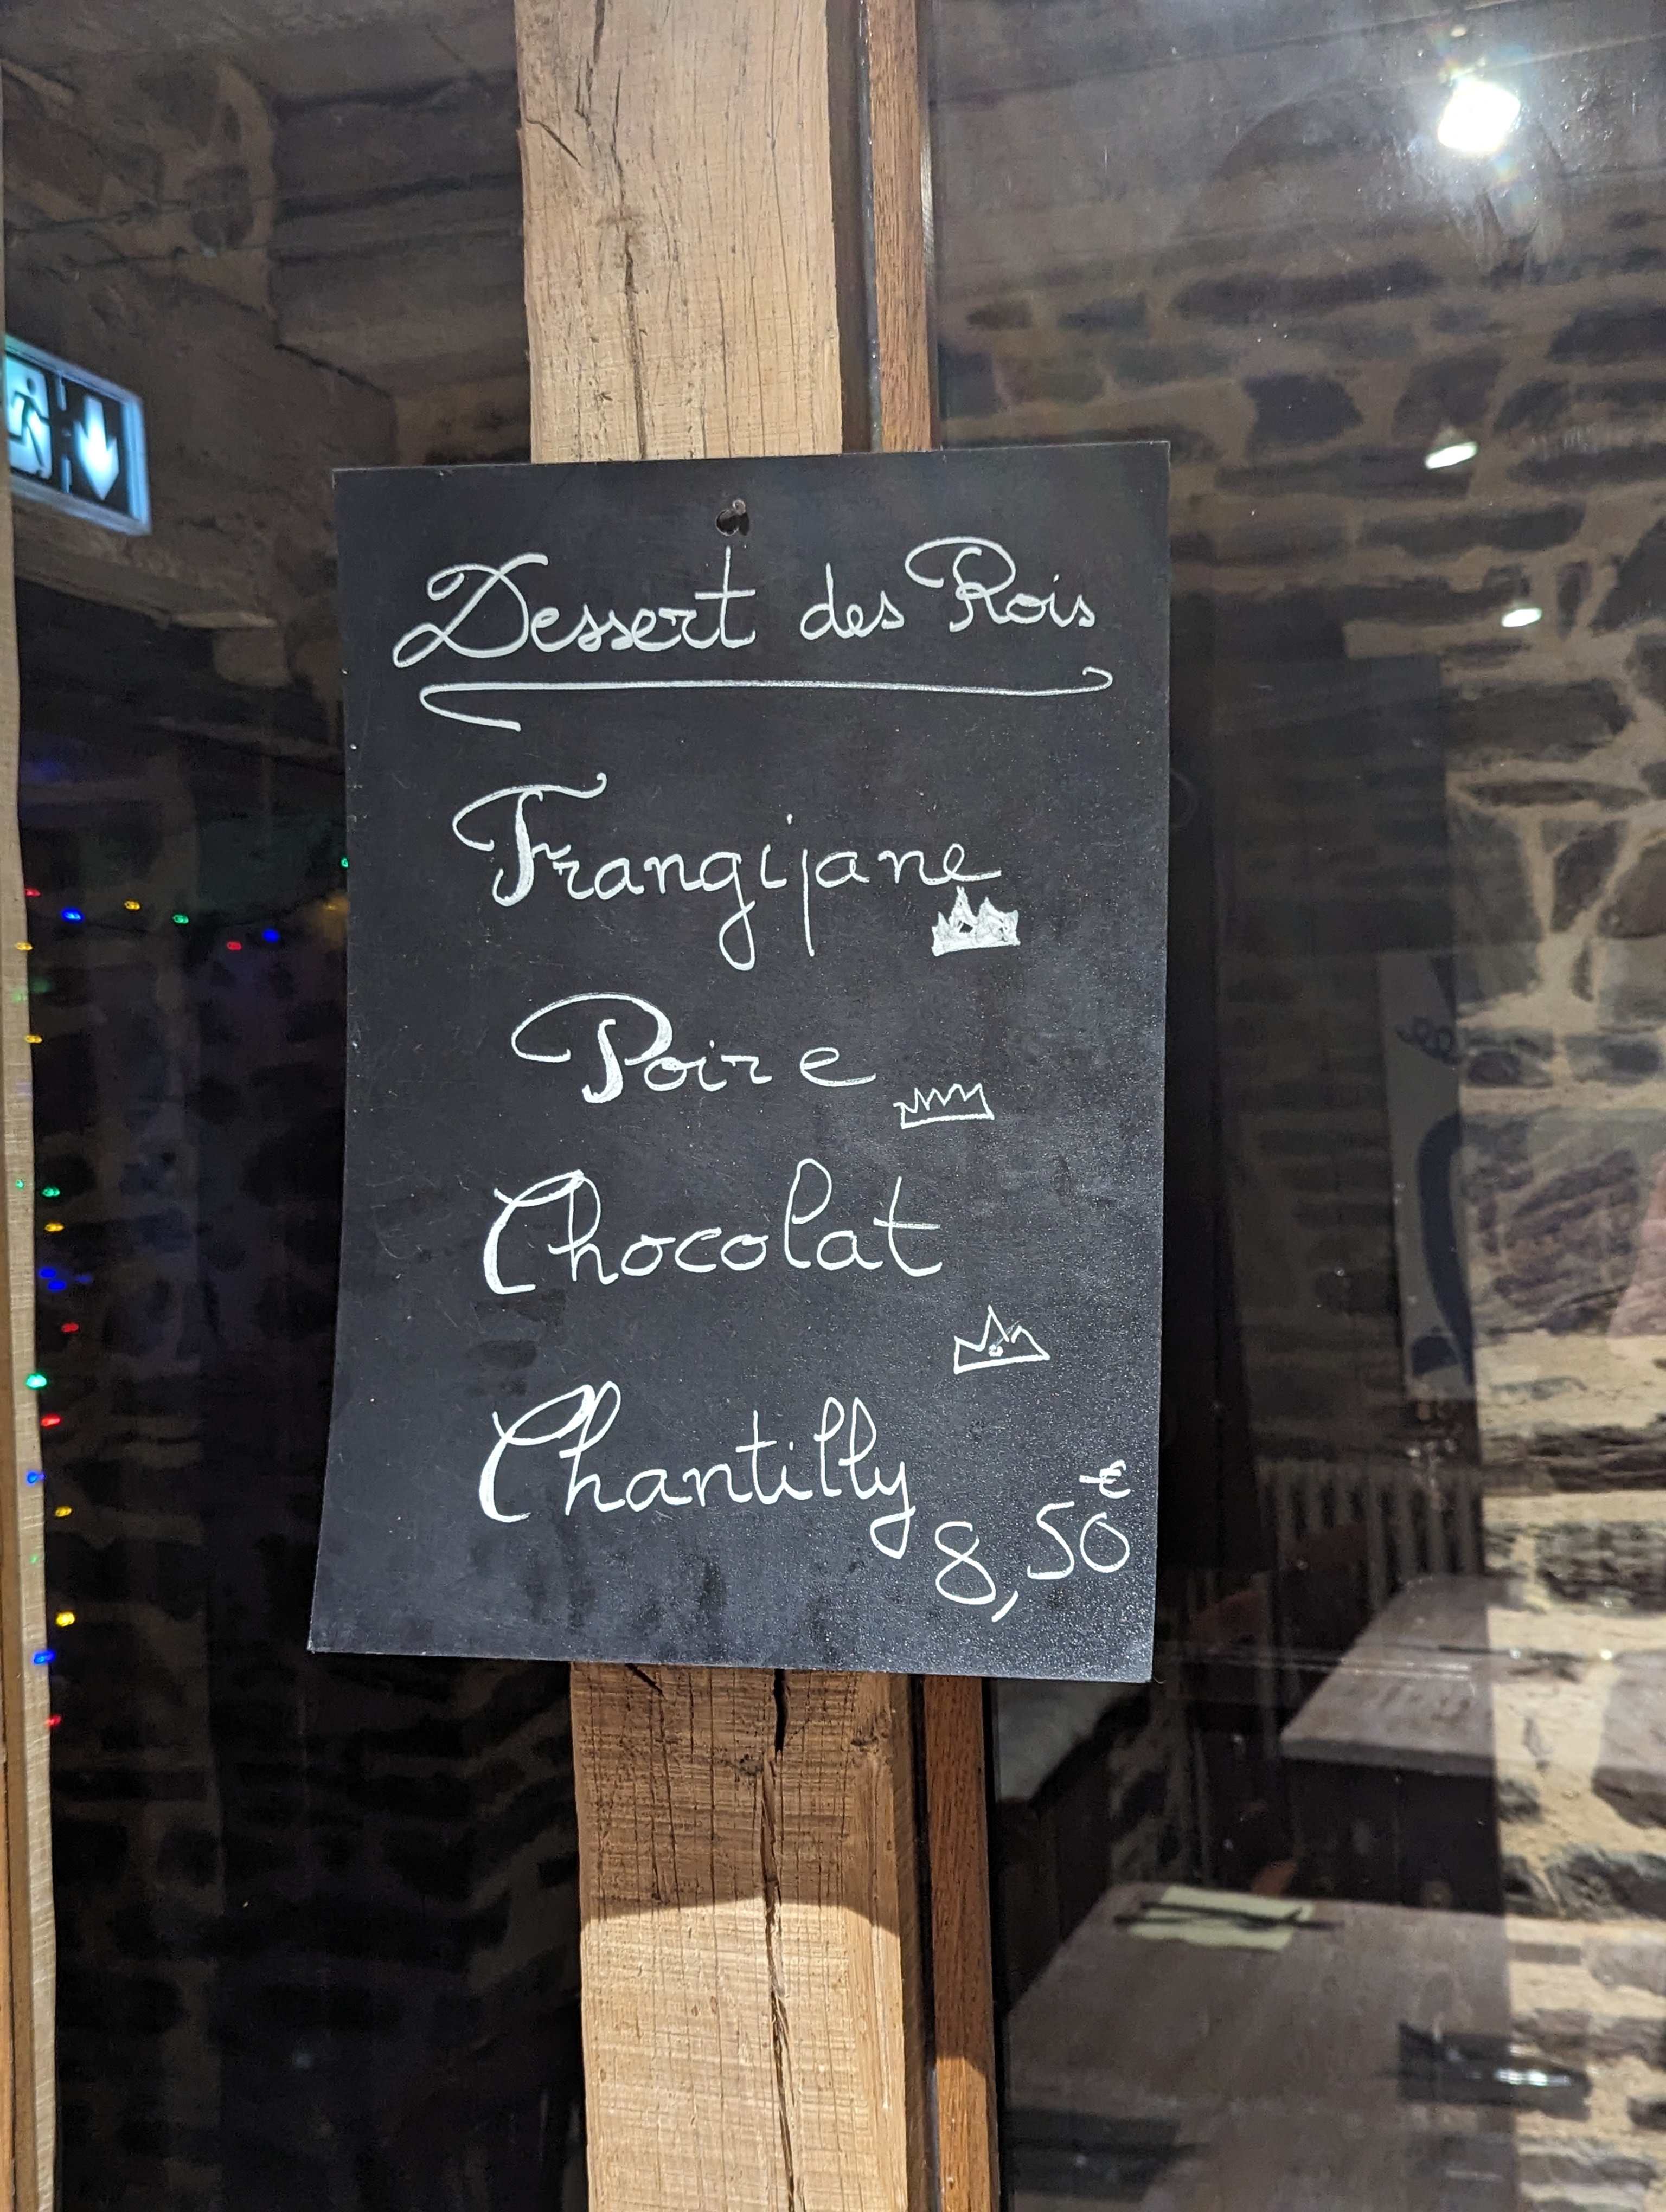 Dessert des Rois
Frangipane
Poire
Chocolat
Chantilly
8,50€